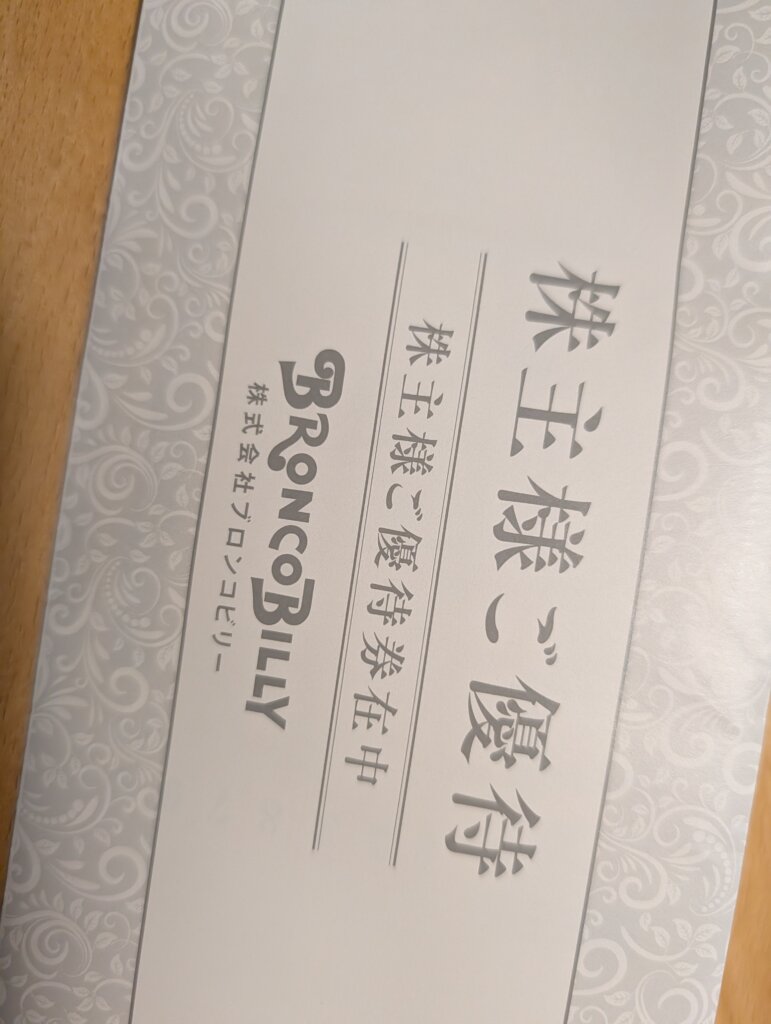 株主様ご優待
株主様ご優待券在中
BRONCOBILLY
株式会社ブロンコビリー